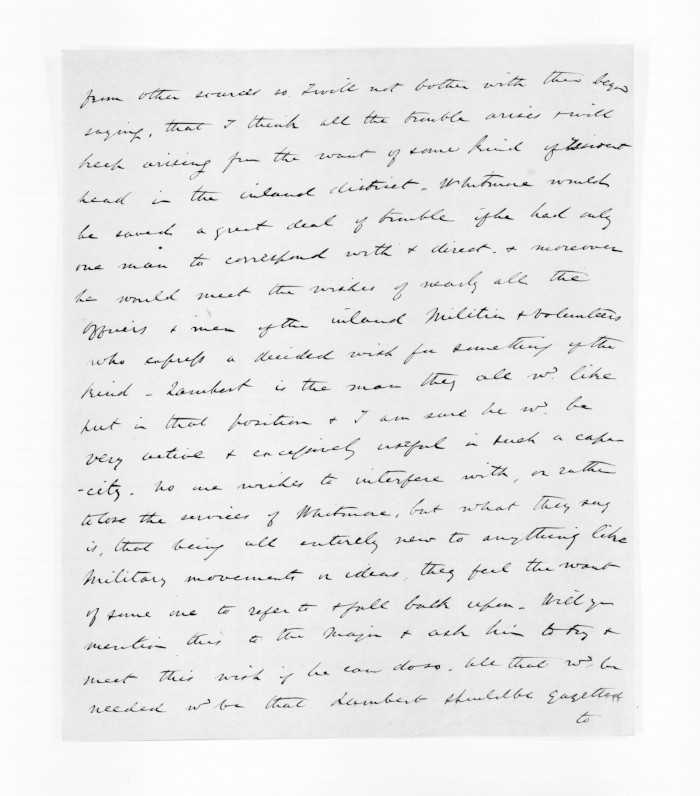 from other sources so I will not bother with them beyond
saying, that I think all the trouble arises & will
keep arising from the want of some kind of resident
head in the inland district - Whitmore would
be saved a great deal of trouble if he had only
one man to correspond with & direct. & moreover
he would meet the wishes of nearly all the
officers & men of the inland Militia & Volunteers
who express a decided wish for something of the
kind - Lambert is the man they all wd. like
put in that position & I am sure he wd. be
very active & excessively useful in such a capa-
-city. No one wishes to interfere with, or rather
to lose the services of Whitmore, but what they say
is, that being all entirely new to anything like
Military movements or ideas, they feel the want
of some one to refer to & fall back upon - Will you
mention this to the Major & ask him to try &
meet this wish if he can do so. All that wd. be
needed wd be that Lambert should be gazetted
to